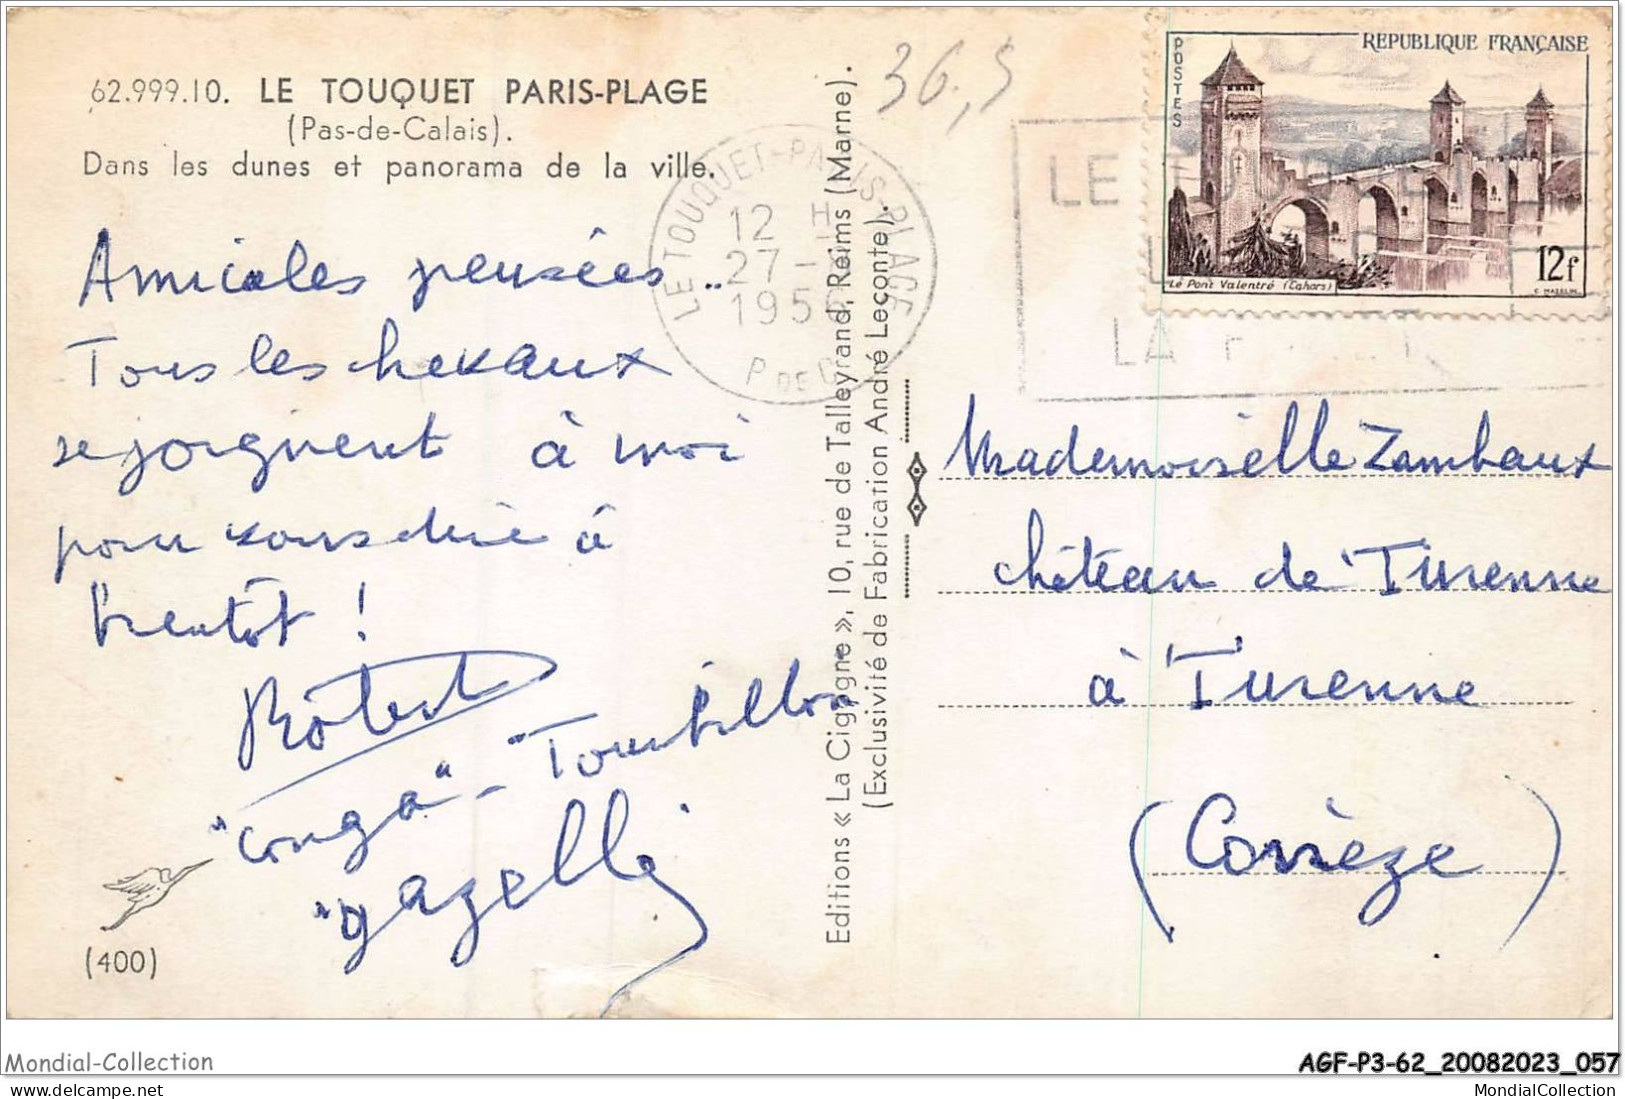 62.999.10. LE TOUQUET PARIS-PLAGE
(Pas-de-Calais).
Dans les dunes et panorama de la ville.
Amicales pensées..
Tous les chevaux
se joignent à moi
pour vous dire à
bientôt !
Robert
"Conga" - "Tourbillon"
"gazelle"
(400)
Editions « La Cigogne », 10, rue de Talleyrand, Reims (Marne).
(Exclusivité de Fabrication André Leconte).
36,5
LE TOUQUET-PARIS-PLAGE
12 H
27 -
195
P DE C
LE
LA
POSTES
REPUBLIQUE FRANÇAISE
12f
Le Pont Valentré (Cahors)
C. MAZELIN
Mademoiselle Zambaux
château de Turenne
à Turenne
(Corrèze)
Mondial-Collection
AGF-P3-62_20082023_057
MondialCollection